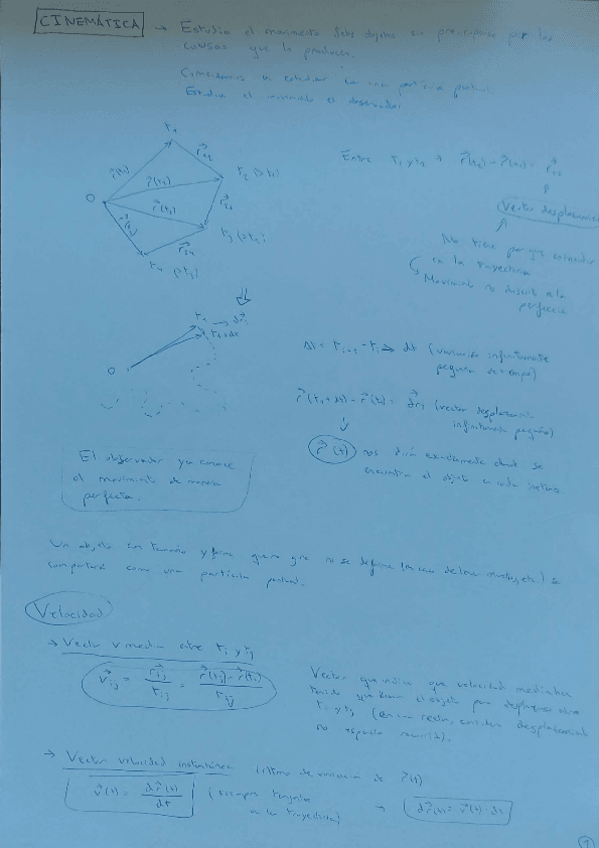 CINEMÁTICA → Estudia el movimiento de los objetos sin preocuparse por las
causas que lo producen.
Comenzamos a estudiar con una partícula puntual.
Estudia el movimiento el observador
t₁
r⃗(t₁)
r⃗₁₂
t₂ (>t₁)
Entre t₁ y t₂ → r⃗(t₂) - r⃗(t₁) = r⃗₁₂
r⃗(t₂)
O
r⃗(t₃)
r⃗₂₃
Vector desplazamiento
r⃗(t₄)
t₃ (>t₂)
r⃗₃₄
t₄ (>t₃)
No tiene por qué coincidir
en la trayectoria
Movimiento no descrito a la
perfección
dr⃗₁
t₁+dt
O
Δt = - tᵢ → dt (variación infinitamente
pequeña de tiempo)
r⃗(t₁+dt) - r⃗(t₁) = dr⃗₁ (vector desplazamiento
infinitamente pequeño)
r⃗(t) nos dirá exactamente dónde se
encuentra el objeto en cada instante
El observador ya conoce
el movimiento de manera
perfecta.
Un objeto con tamaño y forma que no gire ni se deforme se
comportará como una partícula puntual.
Velocidad
→ Vector v media entre tᵢ y tⱼ
v⃗ᵢⱼ = r⃗ᵢⱼ / tᵢⱼ = r⃗(tⱼ) - r⃗(tᵢ) / tᵢⱼ
Vector que indica que velocidad media ha
tenido que llevar el objeto para desplazarse entre
tᵢ y tⱼ (desplazamiento
no espacio recorrido).
→ Vector velocidad instantánea (ritmo de variación de r⃗(t))
v⃗(t) = dr⃗(t) / dt (siempre tangente
a la trayectoria) → dr⃗(t) = v⃗(t) · dt
1